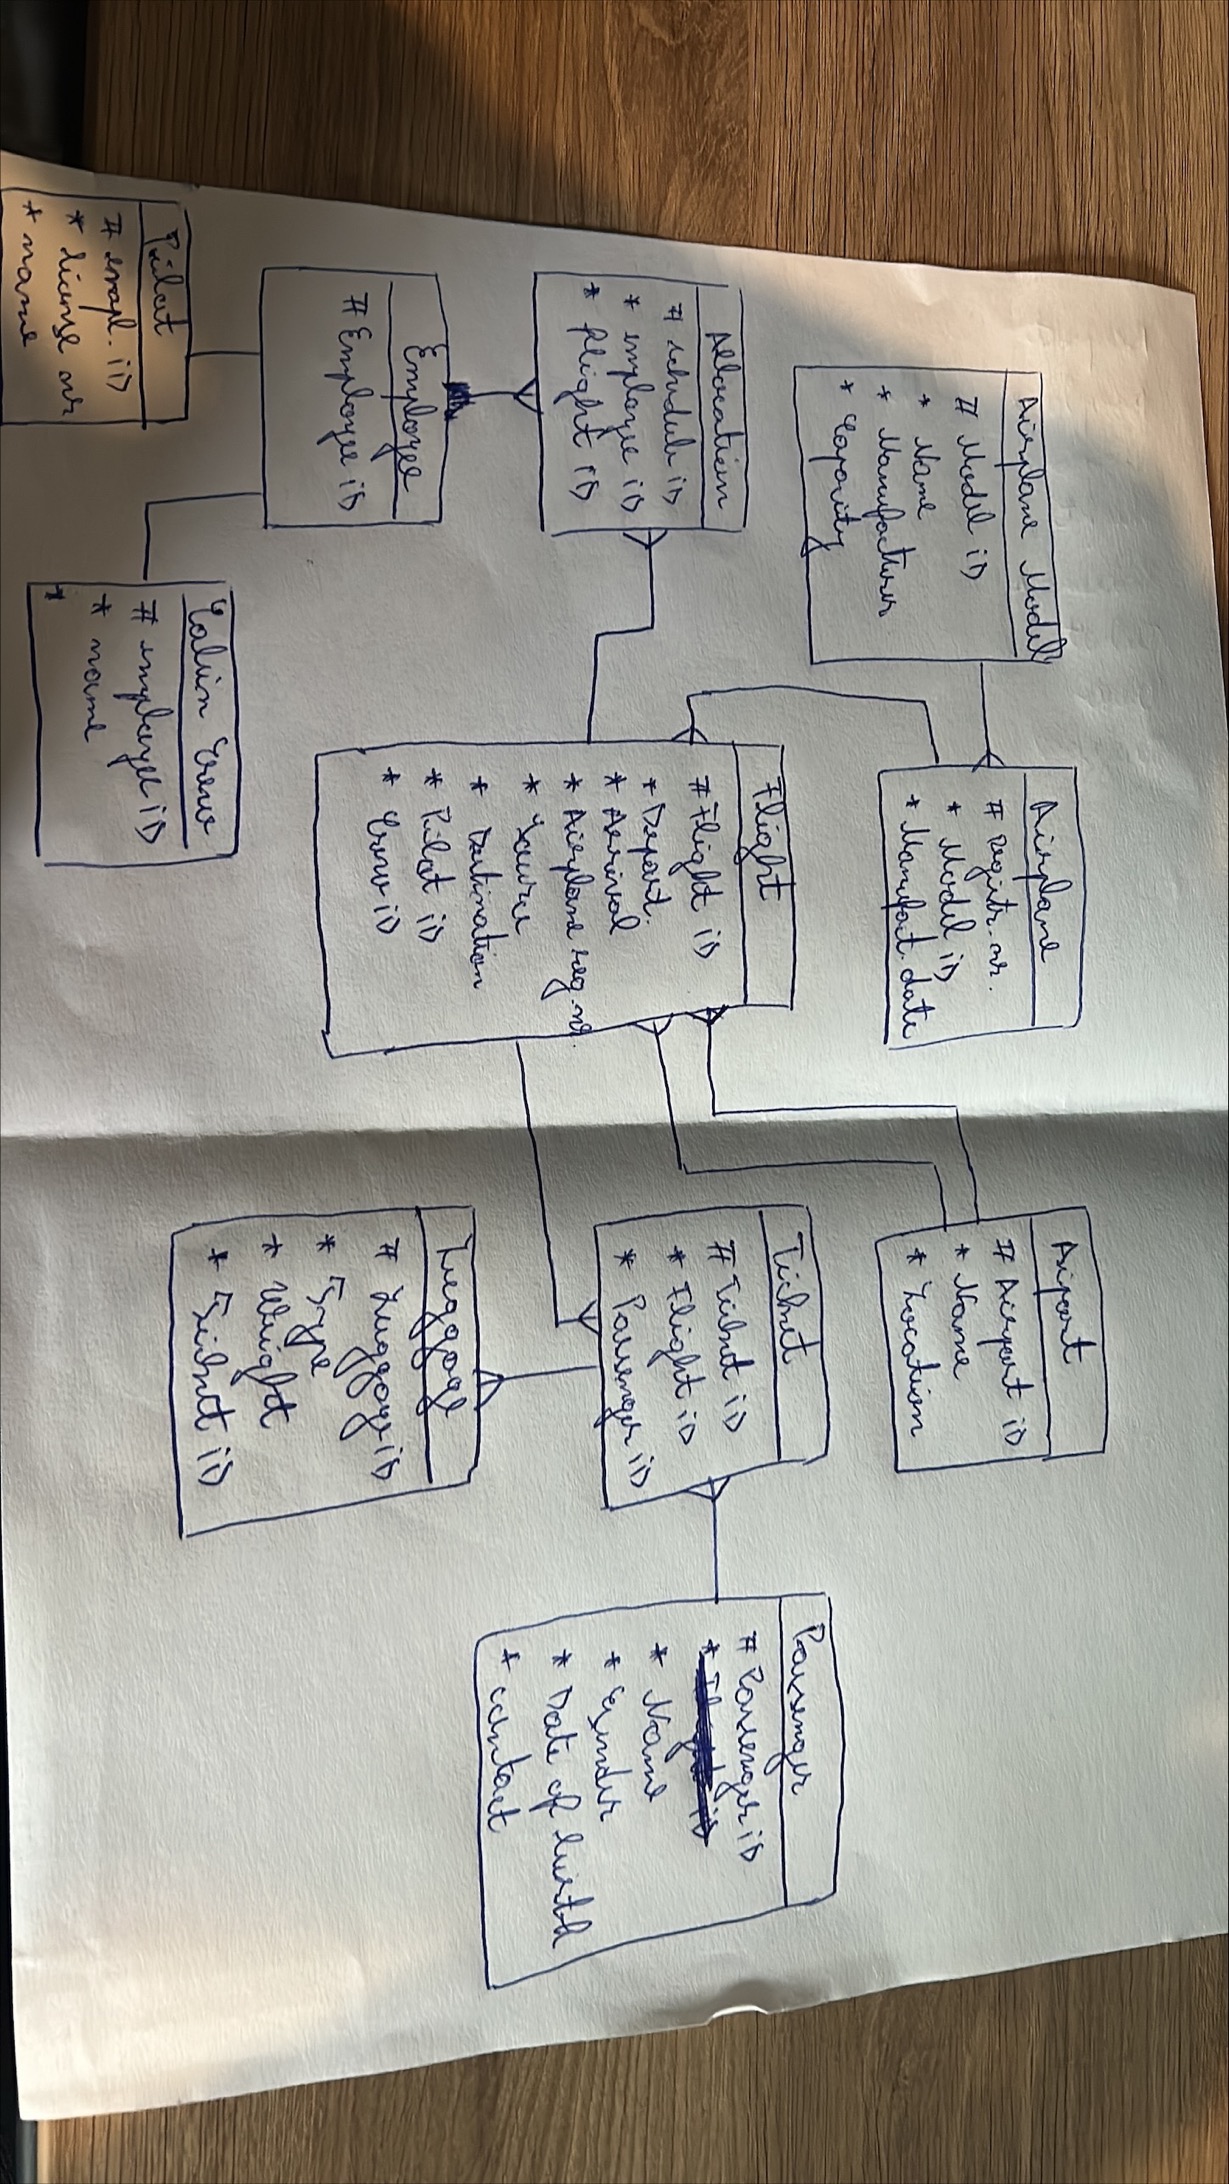 Airplane Model
# Model iD
* Name
* Manufacturer
* Capacity
Airplane
# Registr. nr.
* Model iD
* Manufact. date
Airport
# Airport iD
* Name
* Location
Allocation
# schedule iD
* employee iD
* flight iD
Flight
# Flight iD
* Depart.
* Arrival
* Airplane reg. nr.
* Source
* Destination
* Pilot iD
* Crew iD
Ticket
# Ticket iD
* Flight iD
* Passenger iD
Passenger
# Passenger iD
* Flight iD
* Name
* Gender
* Date of birth
* contact
Employee
# Employee iD
Luggage
# Luggage iD
* Type
* Weight
* Ticket iD
Pilot
# empl. iD
* license nr
* name
Cabin Crew
# employee iD
* name
*